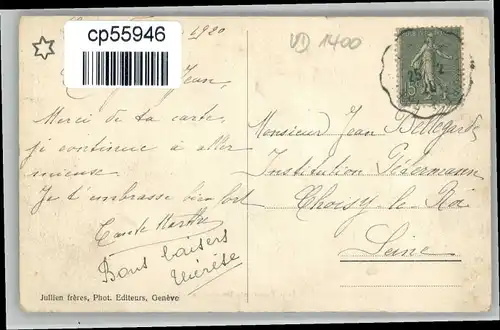 cp55946
1920
VD 1400
Jean,
Merci de ta carte
je continue à aller
mieux
Je t'embrasse bien fort
Tante Marthe
Bons baisers
Thérèse
25
20
Monsieur Jean Bellegarde
Institution
Choisy-le-Roi
Seine
Jullien frères, Phot. Editeurs, Genève